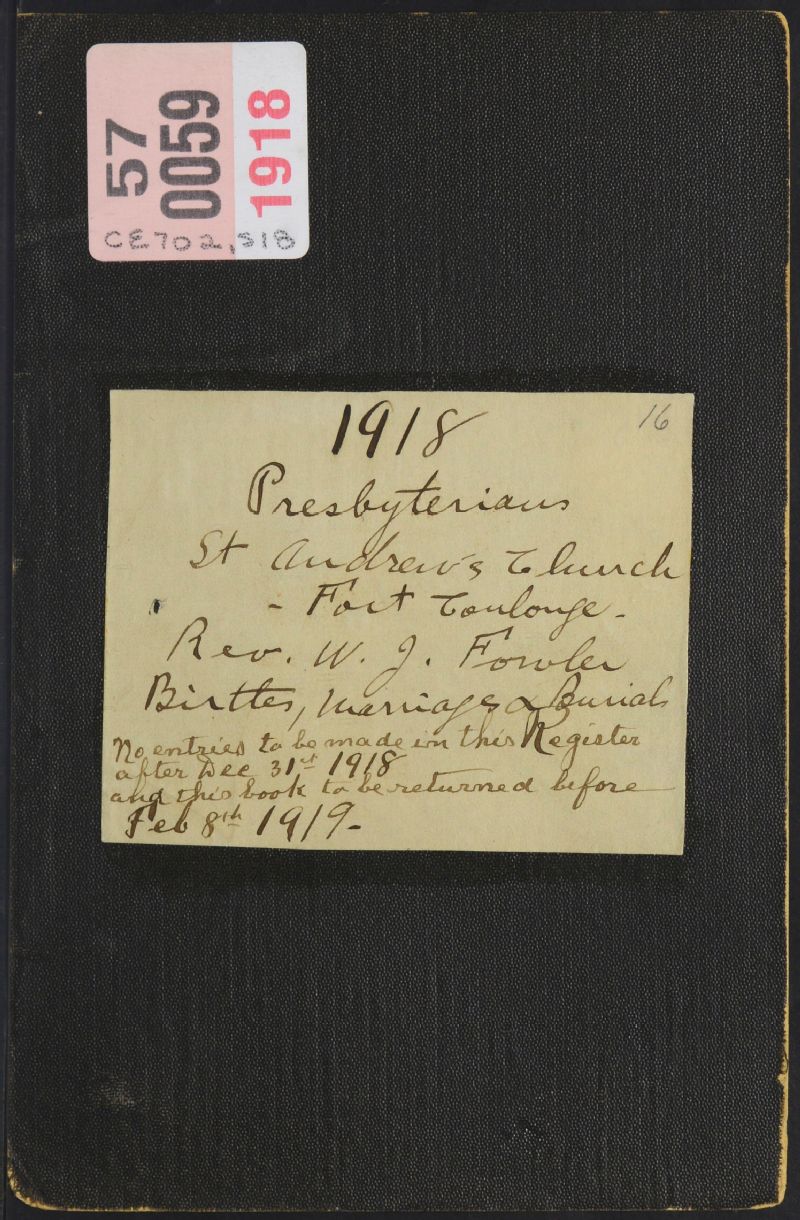 57
0059
1918
CE702,S18
1918
16
Presbyterians
St Andrew's Church
- Fort Coulonge -
Rev. W. J. Fowler
Births, Marriages & Burials
No entries to be made in this Register
after Dec 31st 1918
and this book to be returned before
Feb 8th 1919-